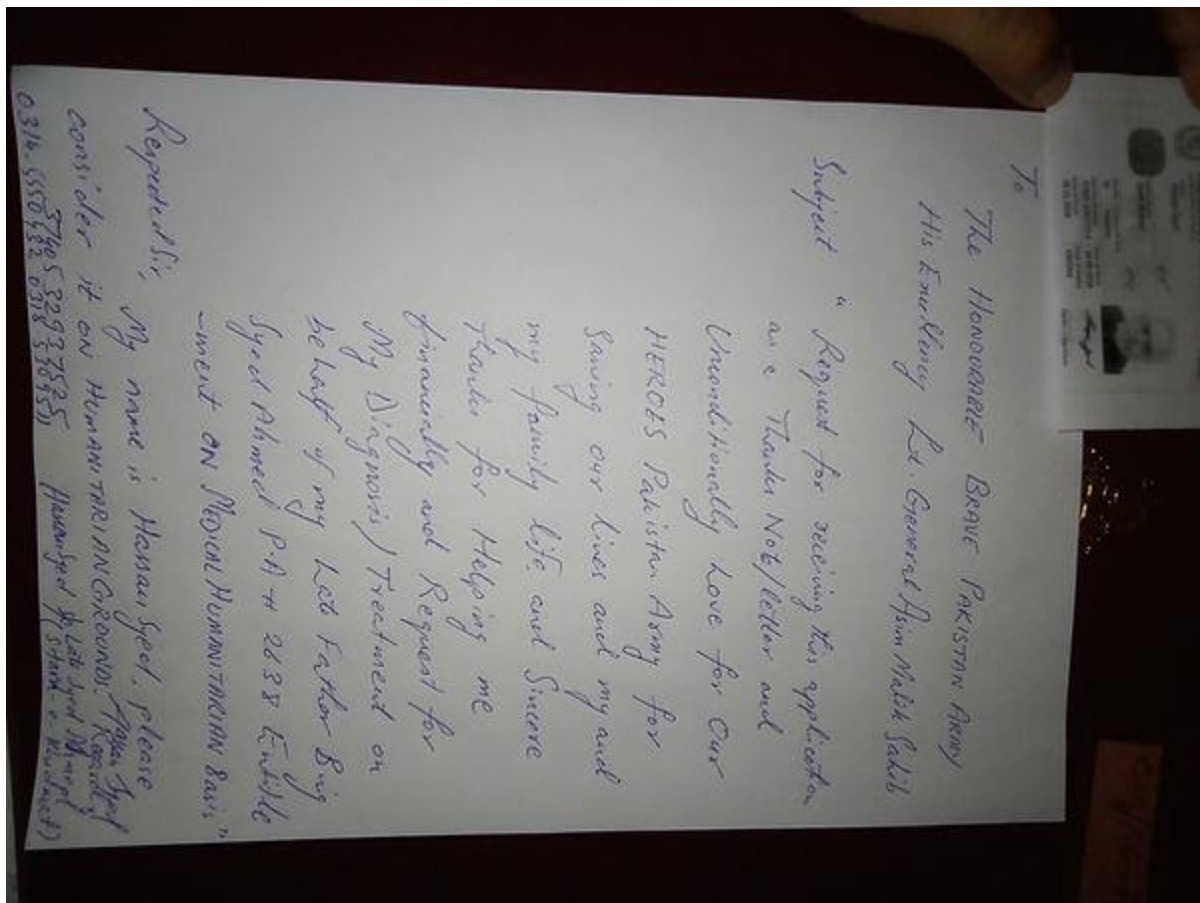 To
The HONOURABLE BRAVE PAKISTAN ARMY
His Excellency Lt. General Asim Malik Sahib.
Subject " Request for receiving this application
as a Thanks Note/letter and
Unconditionally Love for Our
HEROES Pakistan Army for
Saving our lives and my and
my family life and Sincere
Thanks for Helping me
financially and Request for
My Diagnosis/Treatment on
behalf of my Late Father Brig
Syed Ahmed P.A # 2638 Entitle
-ment ON MEDICAL HUMANITARIAN Basis"
Respected Sir,
My name is Hassan Syed. please
consider it ON HUMANITARIAN GROUNDS. Regards,
Hassan Syed
37405 3293752 5 Hassan Syed S/o Late Syed Ahmed
0314. 5550432 0318 (Sitara e Khidmat)